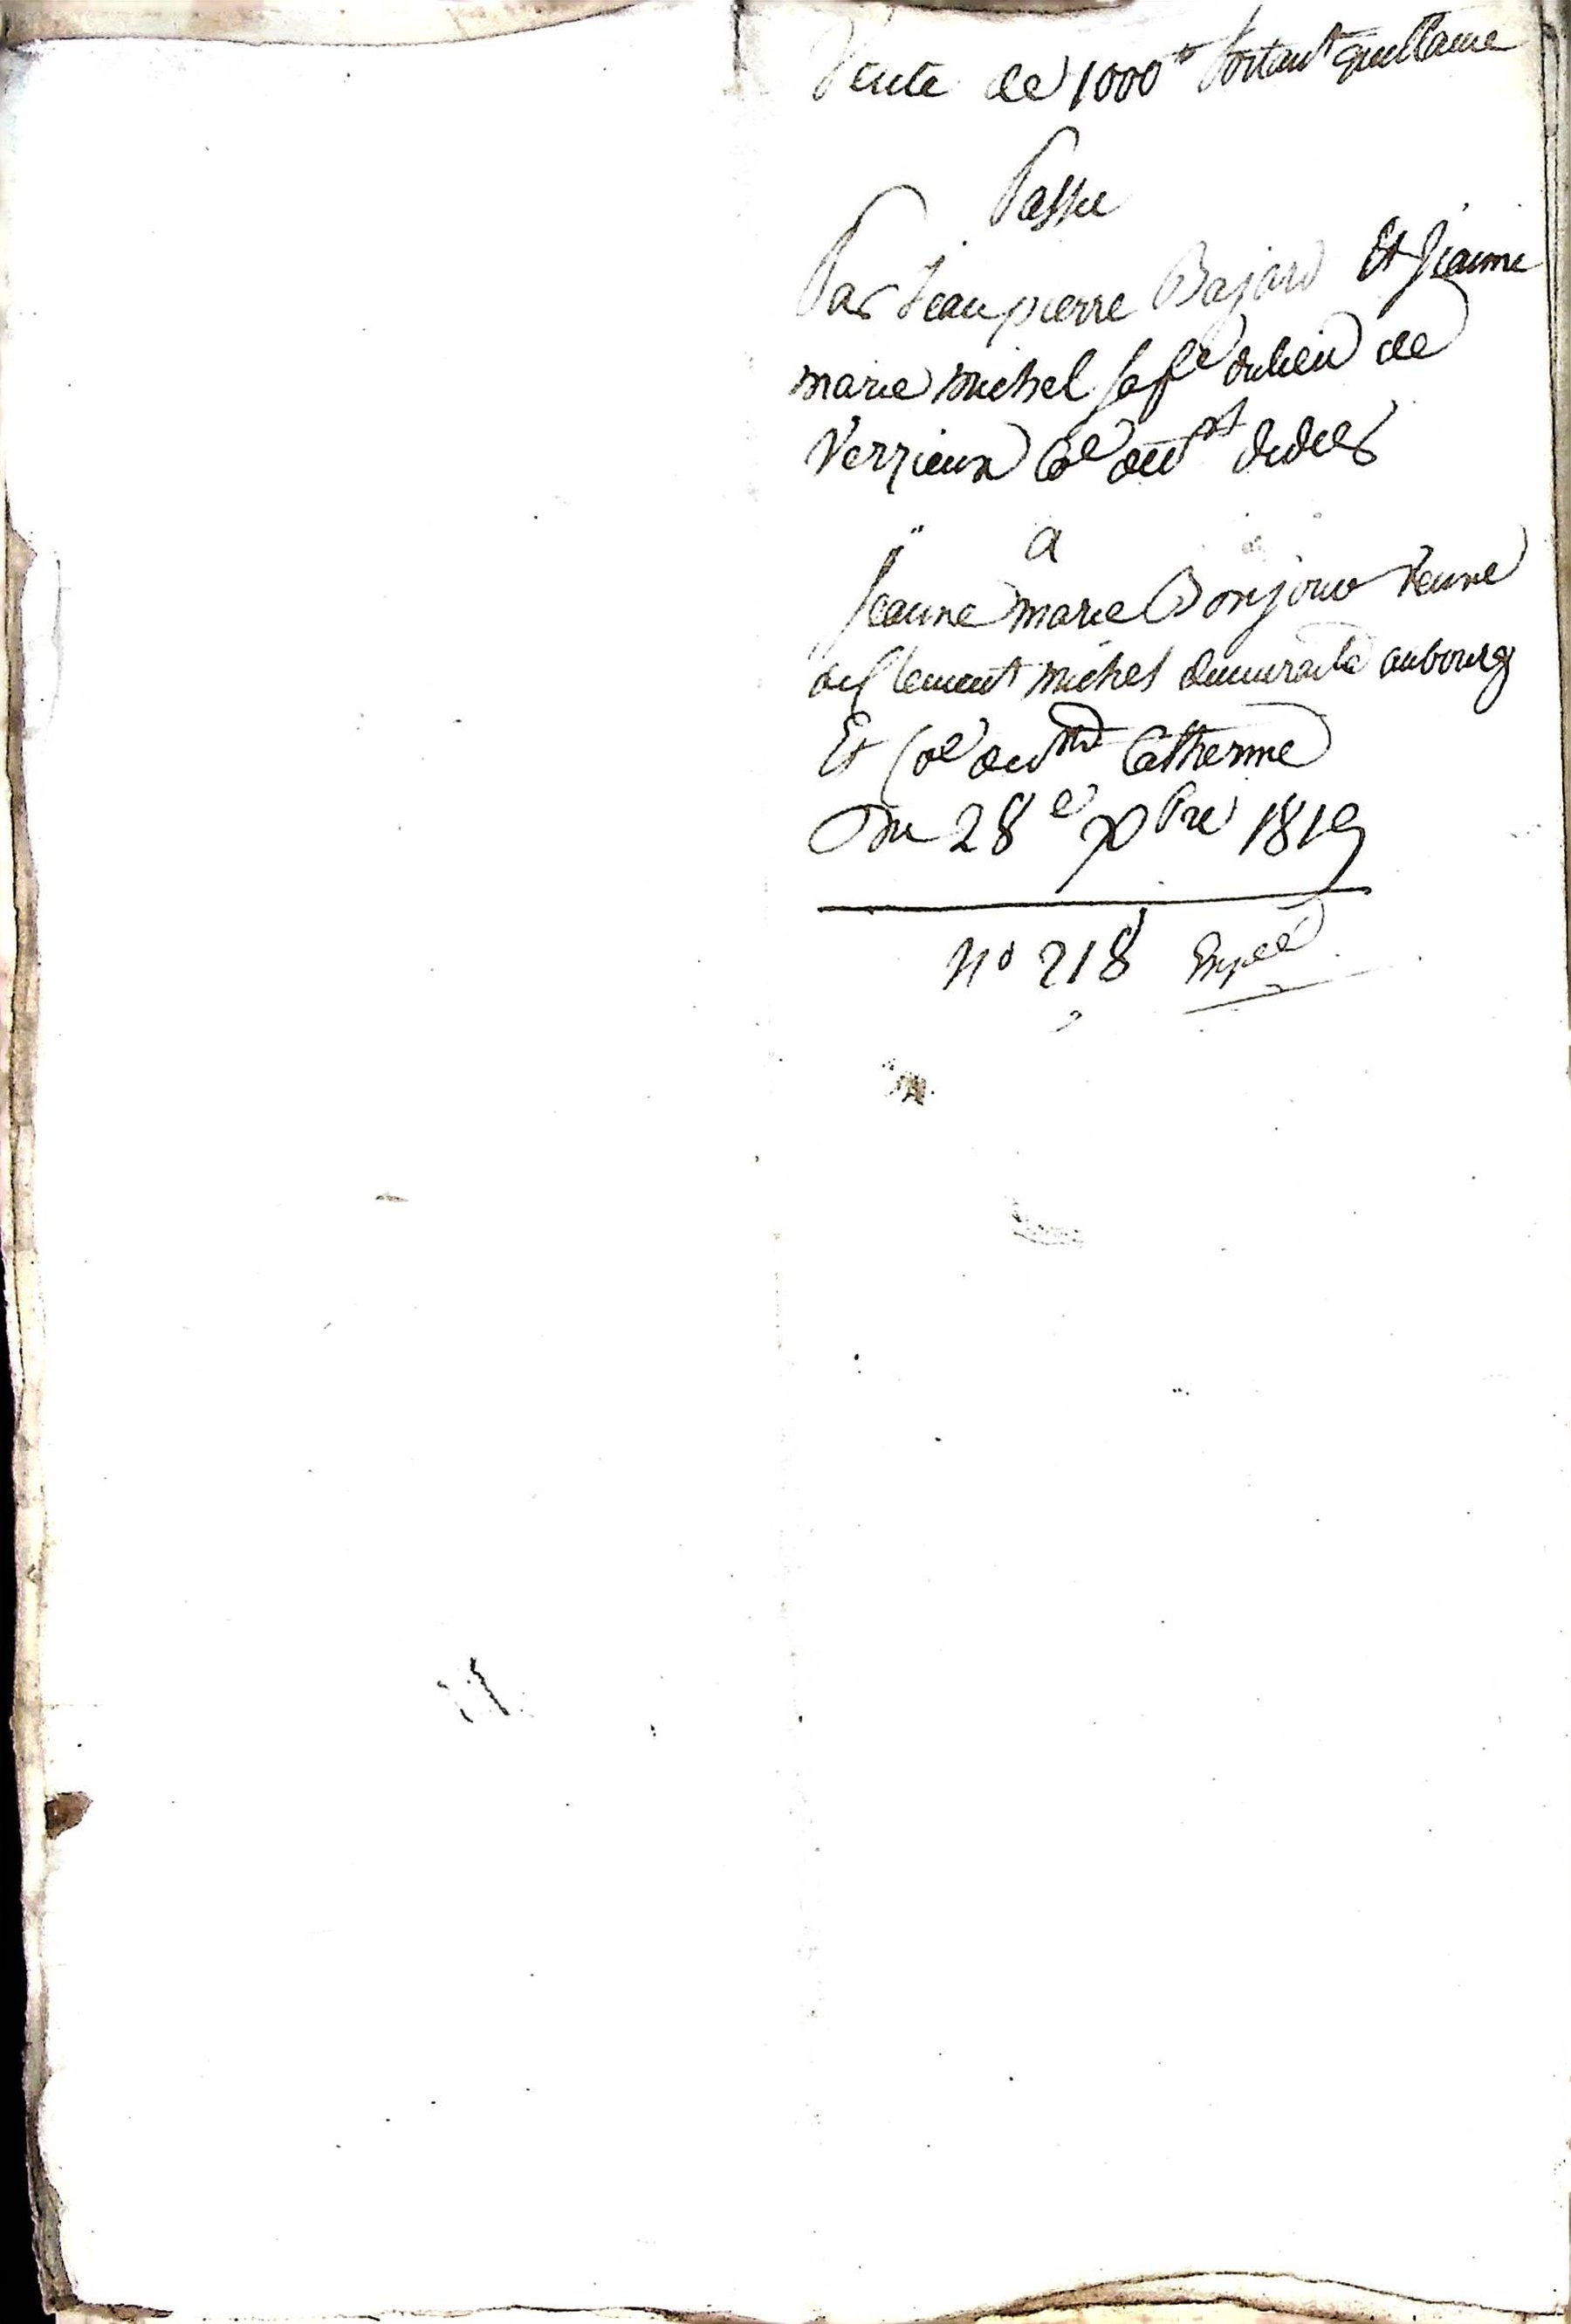 Vente de 1000 # Portant quittance
Passée
Par Jean pierre Bajard Et Jeanne
marie michel sa fe du lieu de
Verrieux Coe de st didier
a
Jeanne marie Bonjour veuve
de Clement michel demeurante au bourg
Et Coe de ste Catherine
Du 28e Xbre 1819
No 218 Expéé